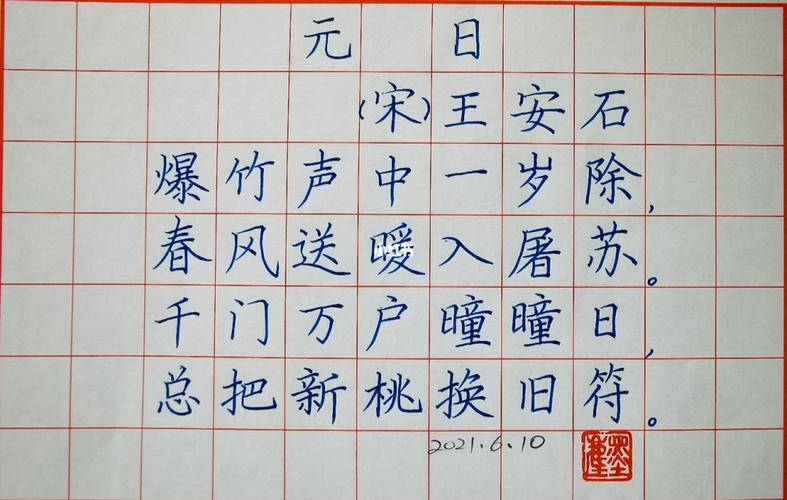 元日
(宋)王安石
爆竹声中一岁除,
春风送暖入屠苏。
千门万户瞳瞳日,
总把新桃换旧符。
2021.6.10